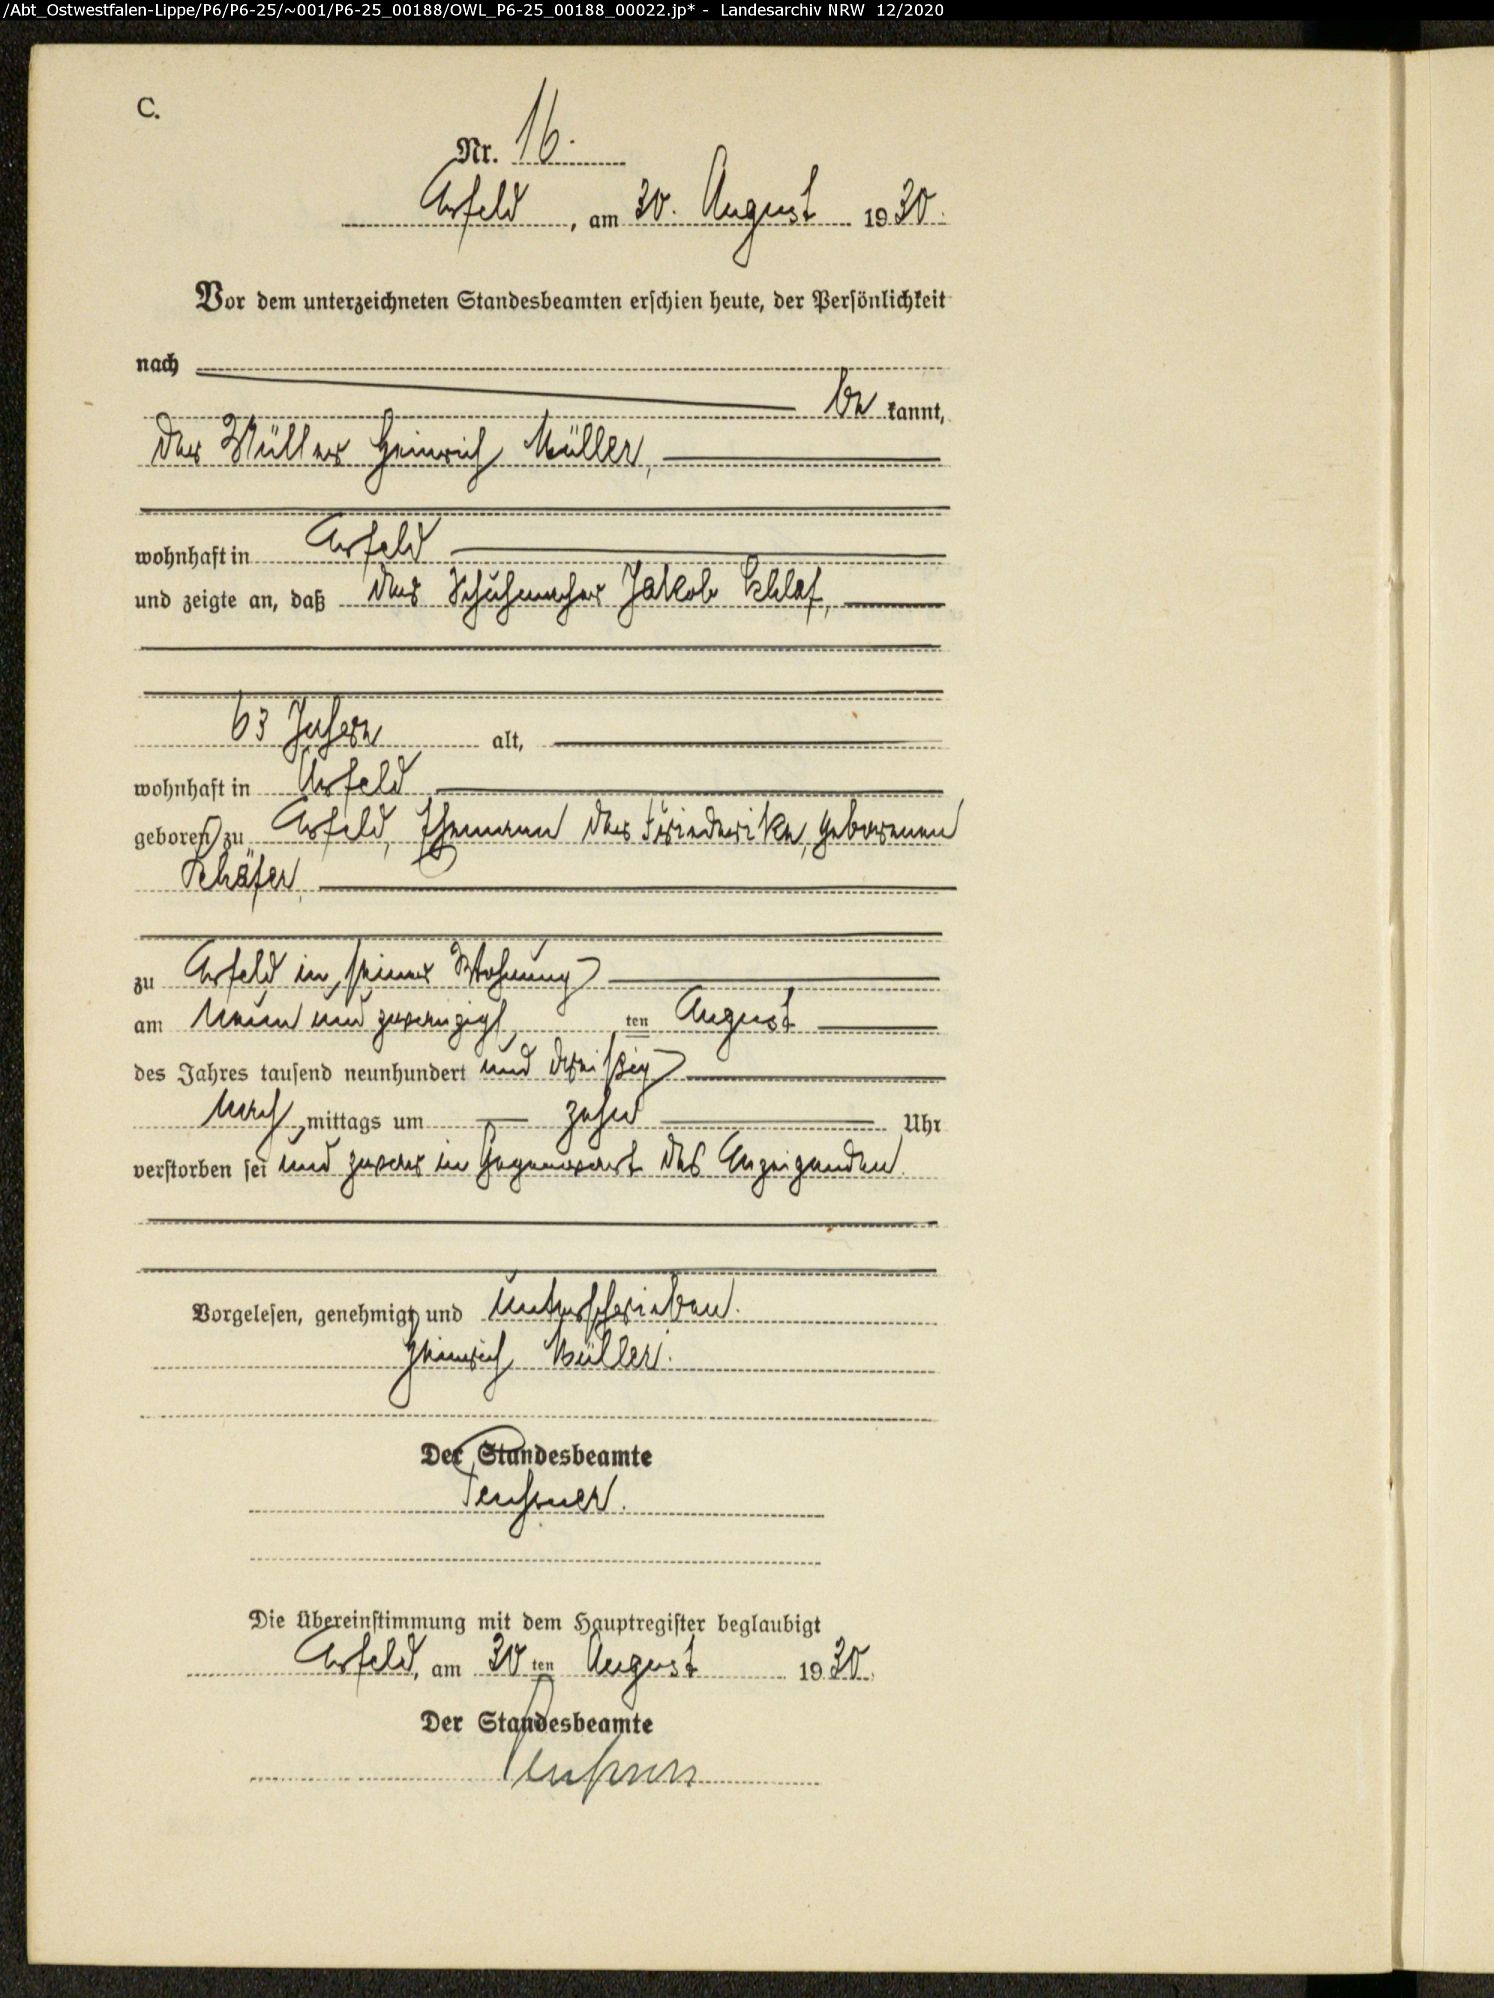 /Abt_Ostwestfalen-Lippe/P6/P6-25/~001/P6-25_00188/OWL_P6-25_00188_00022.jp* - Landesarchiv NRW 12/2020
C.
Nr. 16.
Arfeld, am 30. August 1930.
Vor dem unterzeichneten Standesbeamten erschien heute, der Persönlichkeit
nach
be kannt,
der Müller Heinrich Müller,
wohnhaft in Arfeld
und zeigte an, daß der Schuhmacher Jakob Schlaf,
63 Jahre alt,
wohnhaft in Arfeld
geboren zu Arfeld, Ehemann der Friederike, geborenen
Schäfer,
zu Arfeld in seiner Wohnung
am neun und zwanzigst ten August
des Jahres tausend neunhundert und dreißig
nach mittags um zehn Uhr
verstorben sei und zwar in Gegenwart des Anzeigenden.
Vorgelesen, genehmigt und unterschrieben.
Heinrich Müller.
Der Standesbeamte
Die Übereinstimmung mit dem Hauptregister beglaubigt
Arfeld, am 30 ten August 1930.
Der Standesbeamte